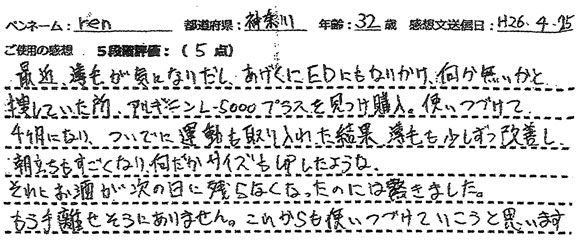 ペンネーム：ren 都道府県：神奈川 年齢：32歳 感想文送信日：H26.4.25
ご使用の感想 5段階評価：(5点)
最近、薄毛が気になりだし、あげくにEDにもなりかけ、何か無いかと
捜していた所、アルギニンL-5000プラスを見つけ購入。使いつづけて
4ヶ月になり、ついでに運動も取り入れた結果 薄毛も少しずつ改善し、
朝立ちもすごくなり、何だかサイズもUPしたような、
それにお酒が次の日に残らなくなったのには驚きました。
もう手離せそうにありません。これからも使いつづけていこうと思います